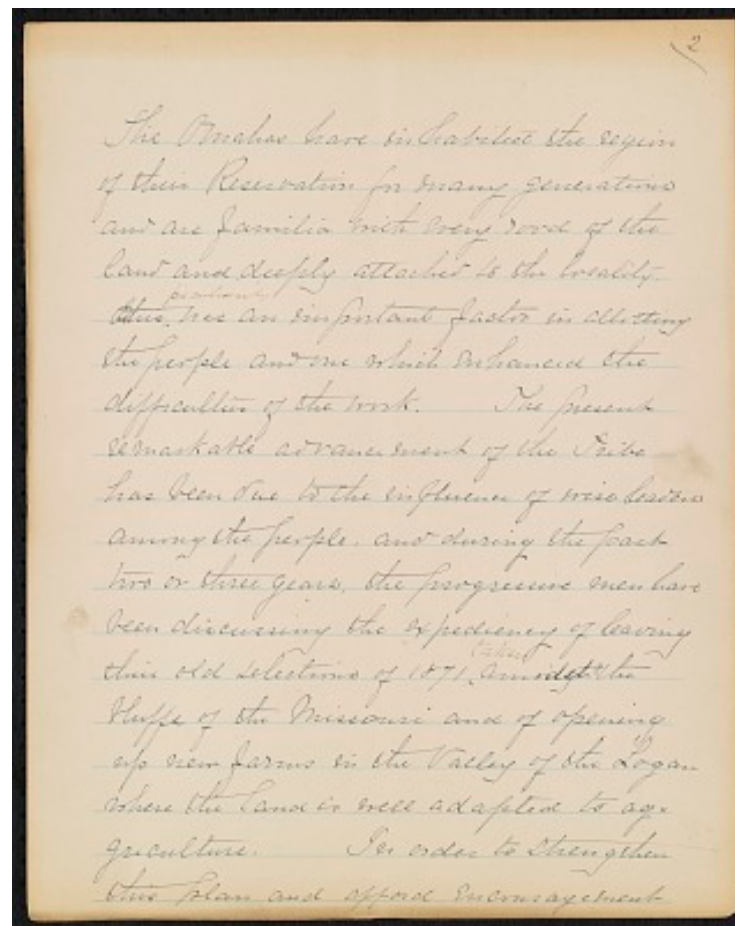 2
The Omahas have inhabited the region
of their Reservation for many generations
and are familiar with every rood of the
land and deeply attached to the locality.
this, was an important factor in allotting
the people and one which enhanced the
difficulties of the work. The present
remarkable advancement of the Tribe
has been due to the influence of wise leaders
among the people, and during the past
two or three years, the progressive men have
been discussing the expediency of leaving
taken
their old selections of 1871, amidst the
bluffs of the Missouri and of opening
up new farms in the Valley of the Logan
where the land is well adapted to ag-
griculture. In order to strengthen
this plan and afford encouragement